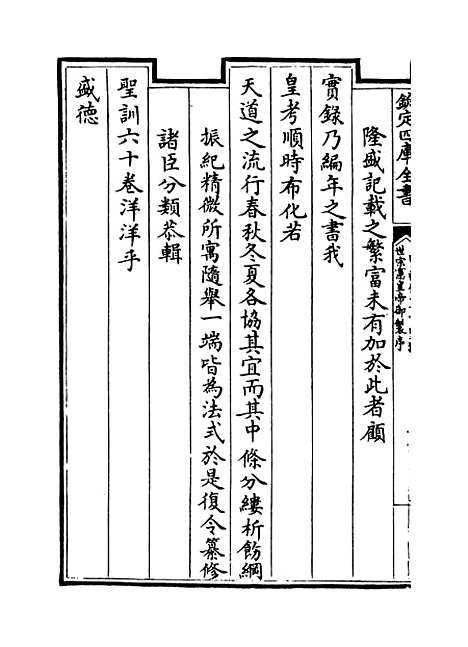 欽定四庫全書
世宗憲皇帝御製序
隆盛記載之繁富未有加於此者顧
實錄乃編年之書我
皇考順時布化若
天道之流行春秋冬夏各協其宜而其中條分縷析飭綱
振紀精微所寓隨舉一端皆為法式於是復令纂修
諸臣分類恭輯
聖訓六十卷洋洋乎
盛德